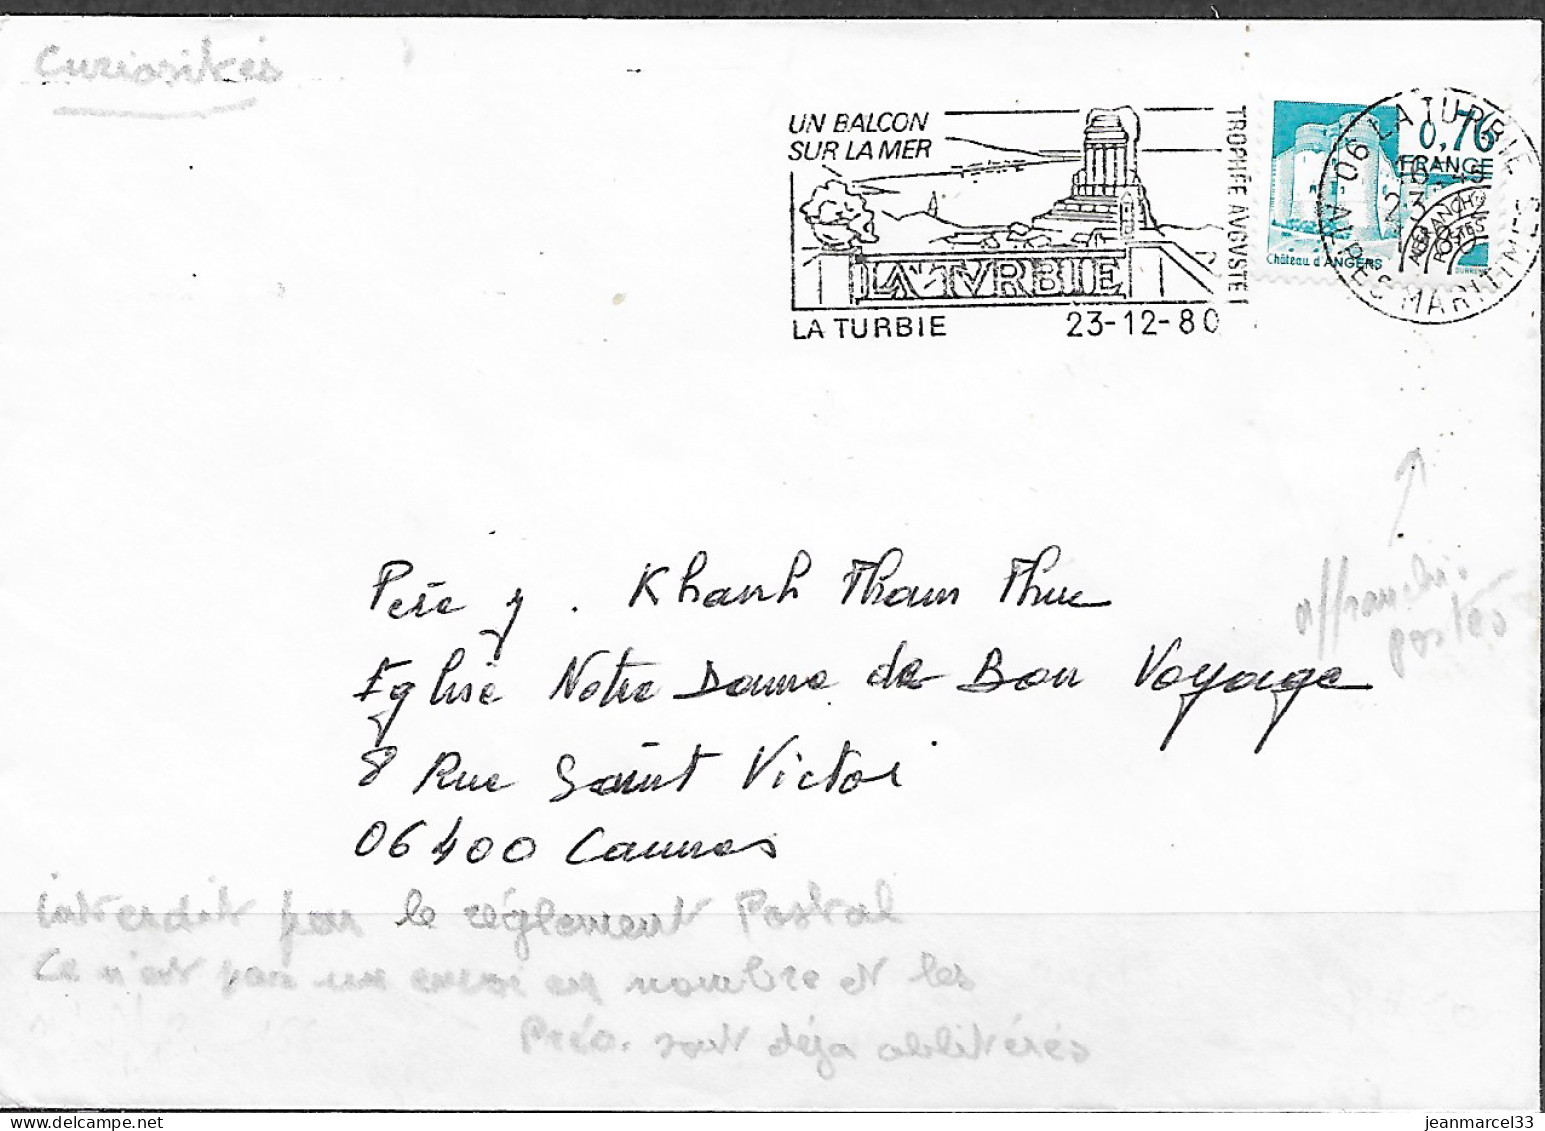 Curiosités
UN BALCON
SUR LA MER
TROPHÉE AVGVSTE
LA TVRBIE
LA TURBIE 23-12-80
06 LA TURBIE
ALPES-MARITIMES
16 45
23
0,76
FRANCE
AFFRANCHts
POSTES
Château d'ANGERS
DURRENS
affranchi.
postes
Père J. Khanh Tham Thuc
Eglise Notre Dame de Bon Voyage
8 Rue Saint Victor
06400 Cannes
interdit par le réglement Postal
Ce n'est pas un envoi en nombre et les
Préo. sont déja oblitérés
jeanmarcel33